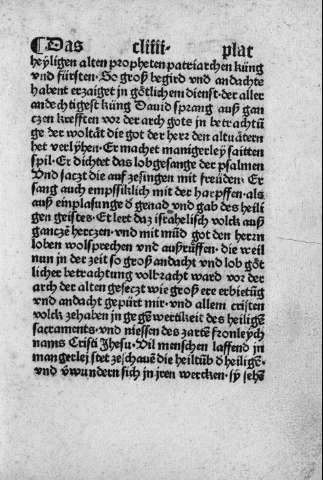 ¶Das cliiii· plat
heyligen alten propheten patriarchen küng
vnd fürsten· So groß begird vnd andachte
habent erzaiget jn götlichem dienst· der aller
andechtigest küng Dauid sprang auß gan
czen krefften vor der arch gots jn betrachtū
ge der woltät die got der herr den altuätern
het verlyhen· Er machet manigerley saitten
spil· Er dichtet das lobgesange der psalmen
Vnd saczt die auf zesingen mit freüden· Er
sang auch empssiklich mit der harpffen· als
auß einplasunge ð genad vnd gab des heili
gen geistes· Et leet daz israhelisch volck auß
gantzē herczen· vnd mit mūd got den herrn
loben wolsprechen vnd außrüffen· die weil
nun jn der zeit so groß andacht vnd lob göt
licher betrachtung volbracht ward vor der
arch der alten geseczt wie groß ere erbietūg
vnd andacht gepürt mir· vnd allem cristen
volck zehaben jn gegēwertikeit des heiligē
sacraments· vnd niessen des zartē fronleych
nams Cristi Jhesu· Vil menschen lauffend jn
mangerlej stet zeschauē die heiltūb ð heiligē·
vnd v̄wundern sich jn jren wercken· sÿ sehē